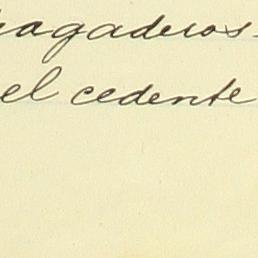 pagaderos
el cedente